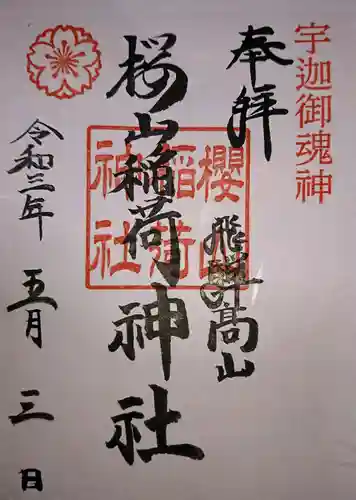 宇迦御魂神
奉拝
飛騨高山
桜山稲荷神社
櫻山
稲荷
神社
令和三年
五月
三日